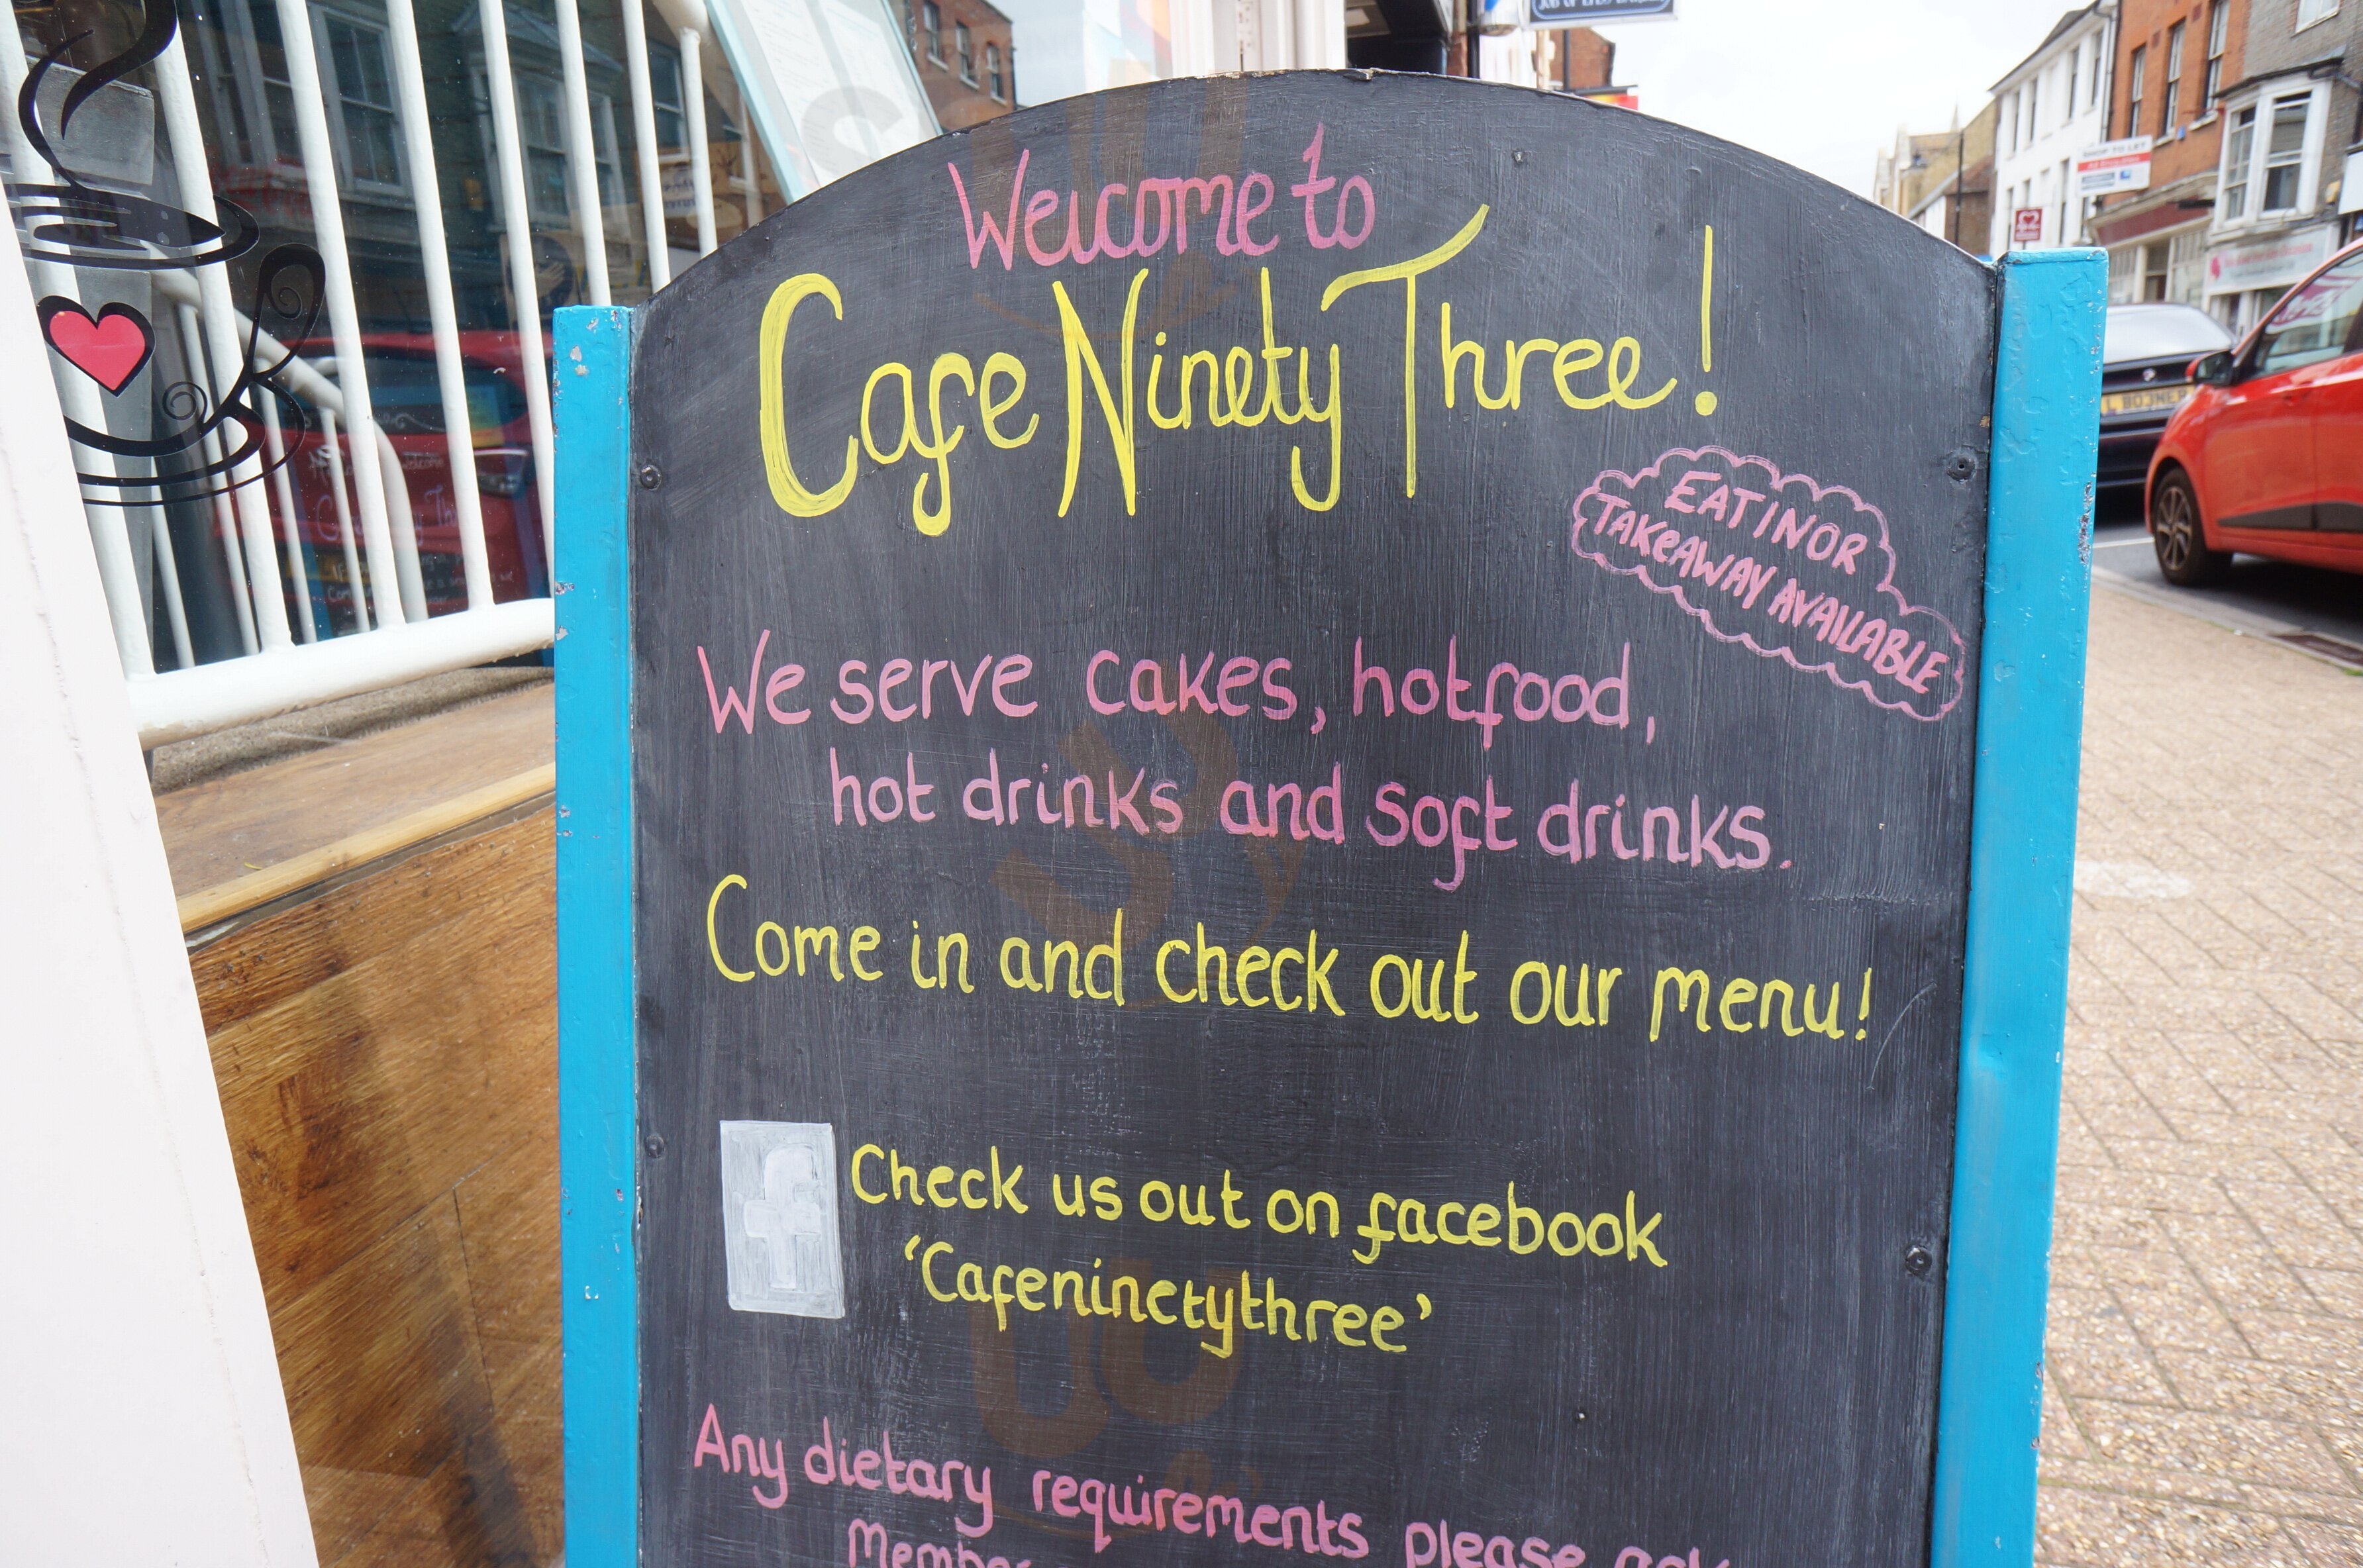 Welcome to
Cafe Ninety Three!
EAT IN OR
TAKEAWAY AVAILABLE
We serve cakes, hotfood,
hot drinks and soft drinks.
Come in and check out our menu!
f
Check us out on facebook
'Cafeninetythree'
Any dietary requirements please ask
SHOP TO LET